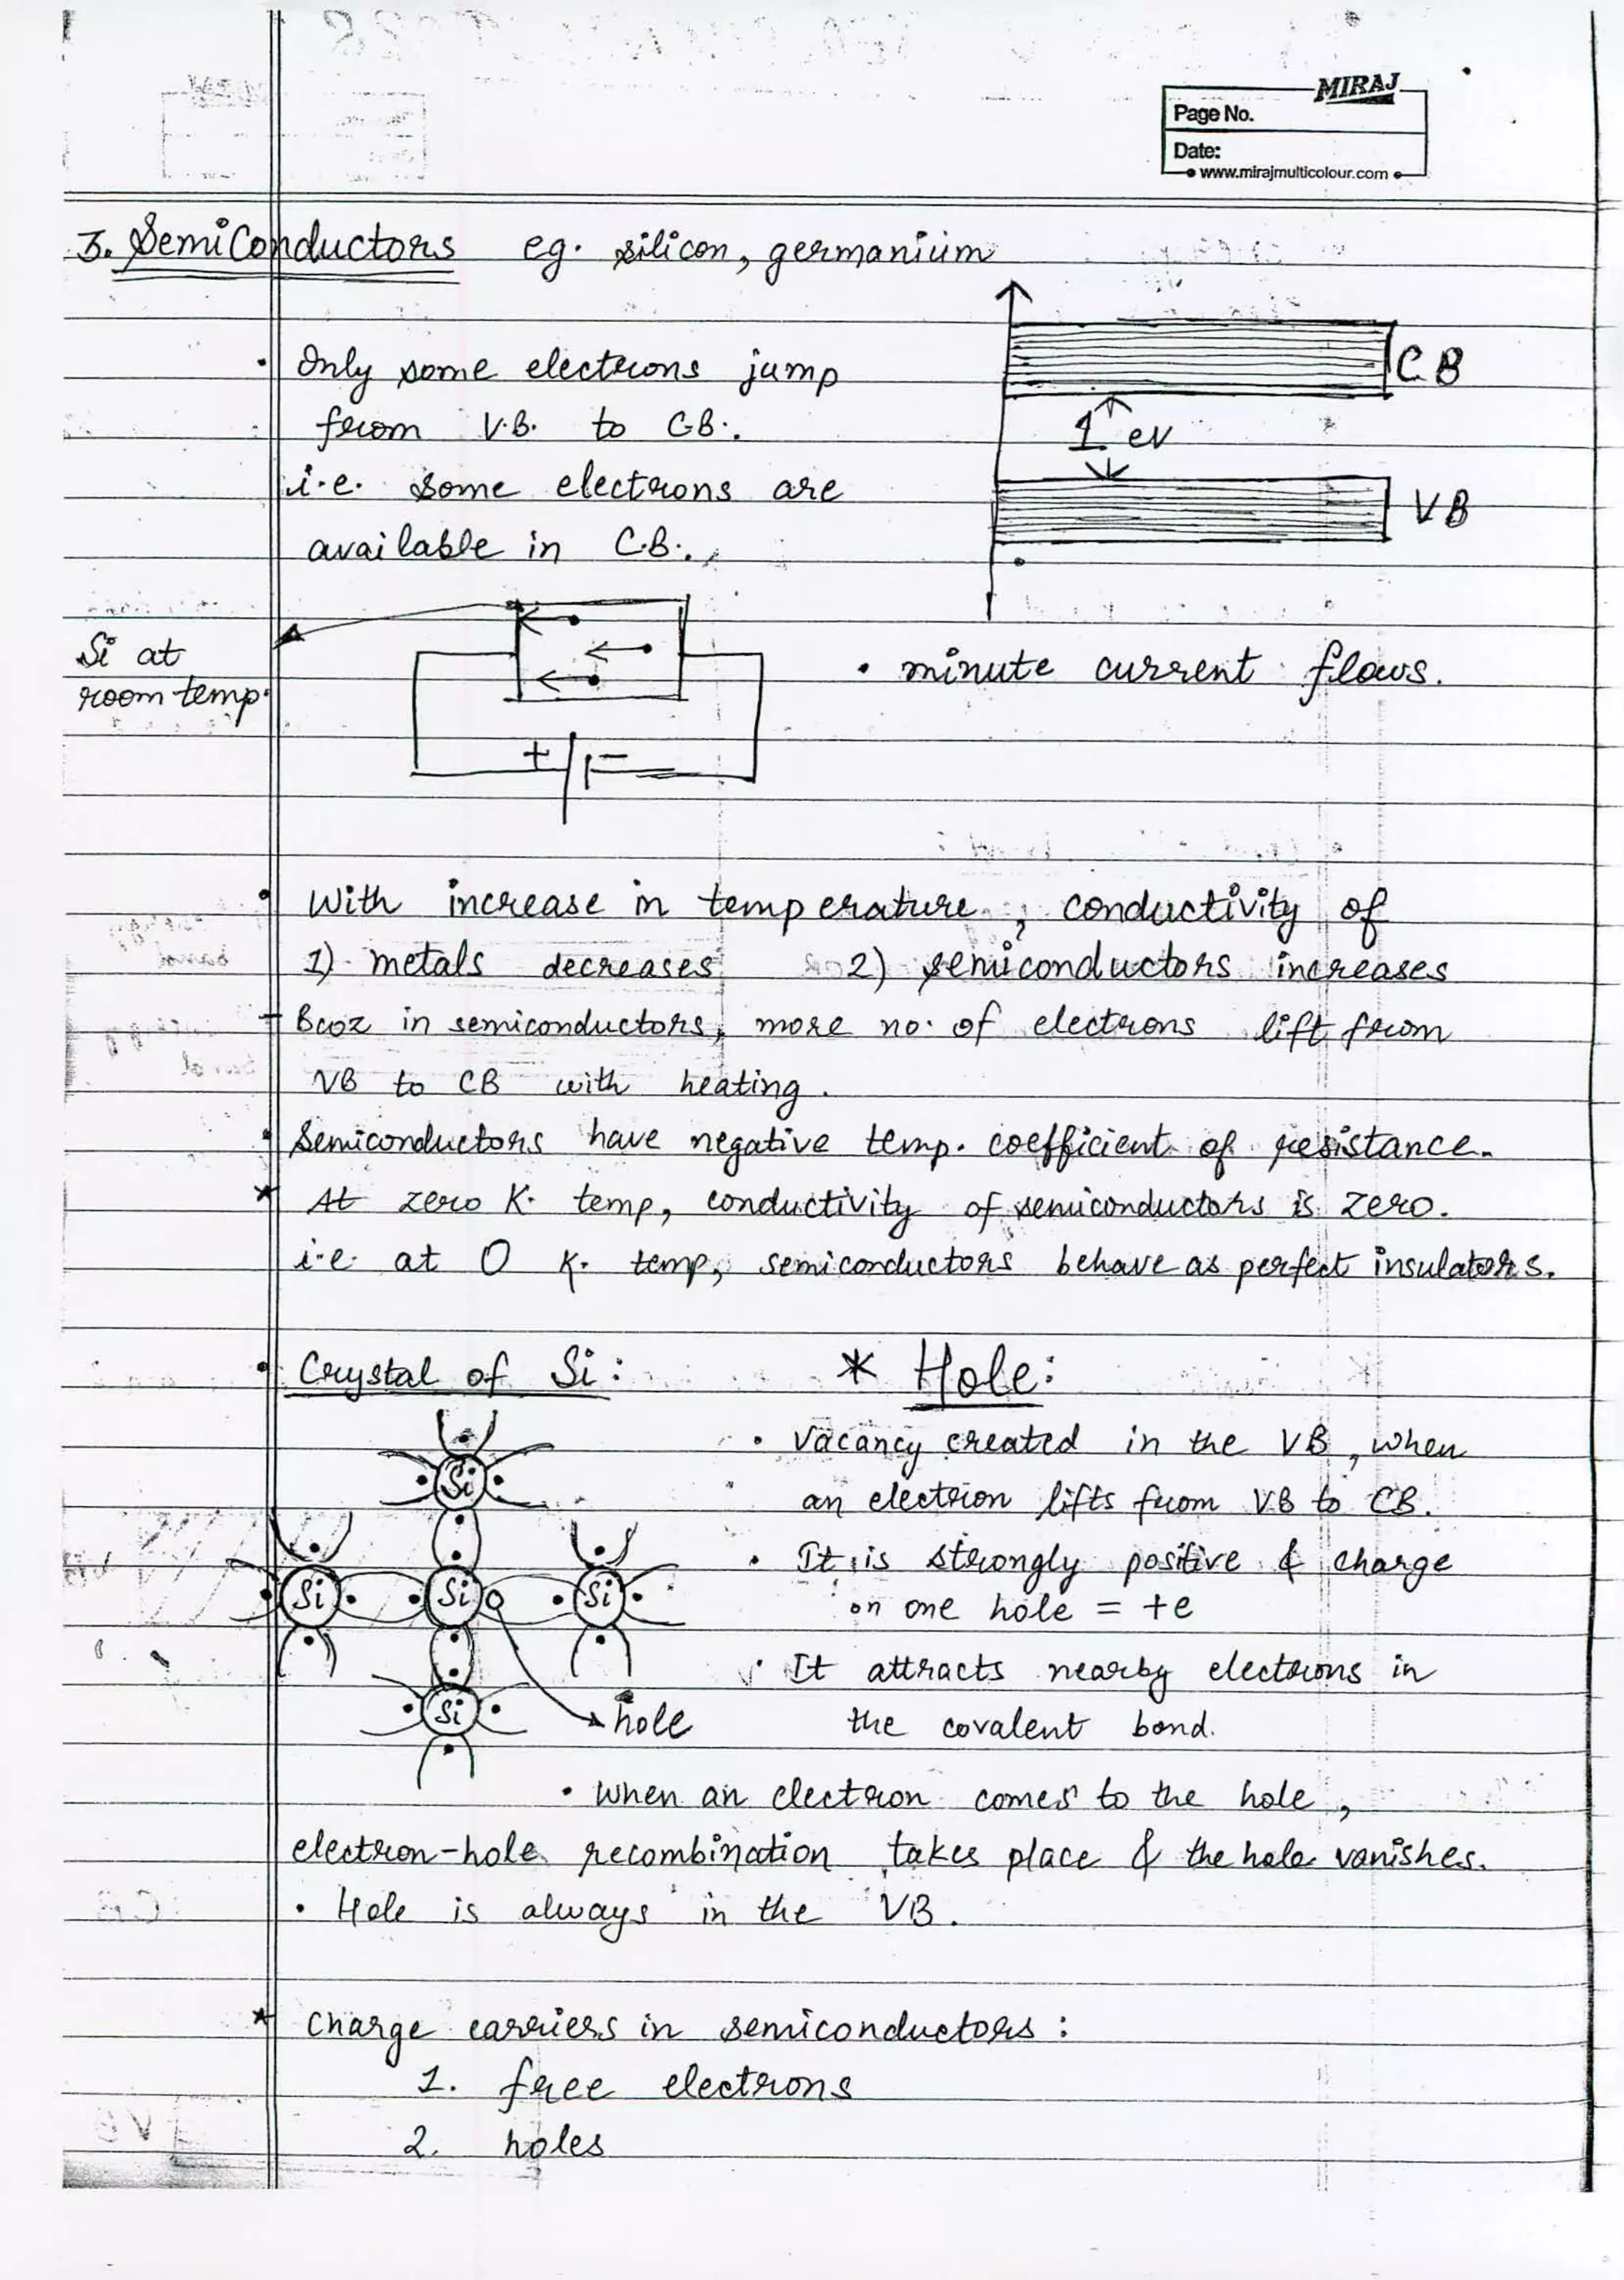 MIRAJ
Page No.
Date:
www.mirajmulticolour.com
3. Semiconductors eg. silicon, germanium
• Only some electrons jump
from V.B. to C.B..
i.e. some electrons are
available in C.B..
CB
1 ev
VB
Si at
room temp.
+ -
• minute current flows.
• With increase in temperature, conductivity of
1) metals decreases 2) semiconductors increases
- Bcoz in semiconductors, more no. of electrons lift from
VB to CB with heating.
• Semiconductors have negative temp. coefficient of resistance.
* At zero K. temp, conductivity of semiconductors is zero.
i.e. at 0 K. temp, semiconductors behave as perfect insulators.
• Crystal of Si:
Si
Si Si Si
Si
hole
* Hole:
• Vacancy created in the VB, when
an electron lifts from VB to CB.
• It is strongly positive & charge
on one hole = +e
• It attracts nearby electrons in
the covalent bond.
• When an electron comes to the hole,
electron-hole recombination takes place & the hole vanishes.
• Hole is always in the VB.
* Charge carriers in semiconductors:
1. free electrons
2. holes